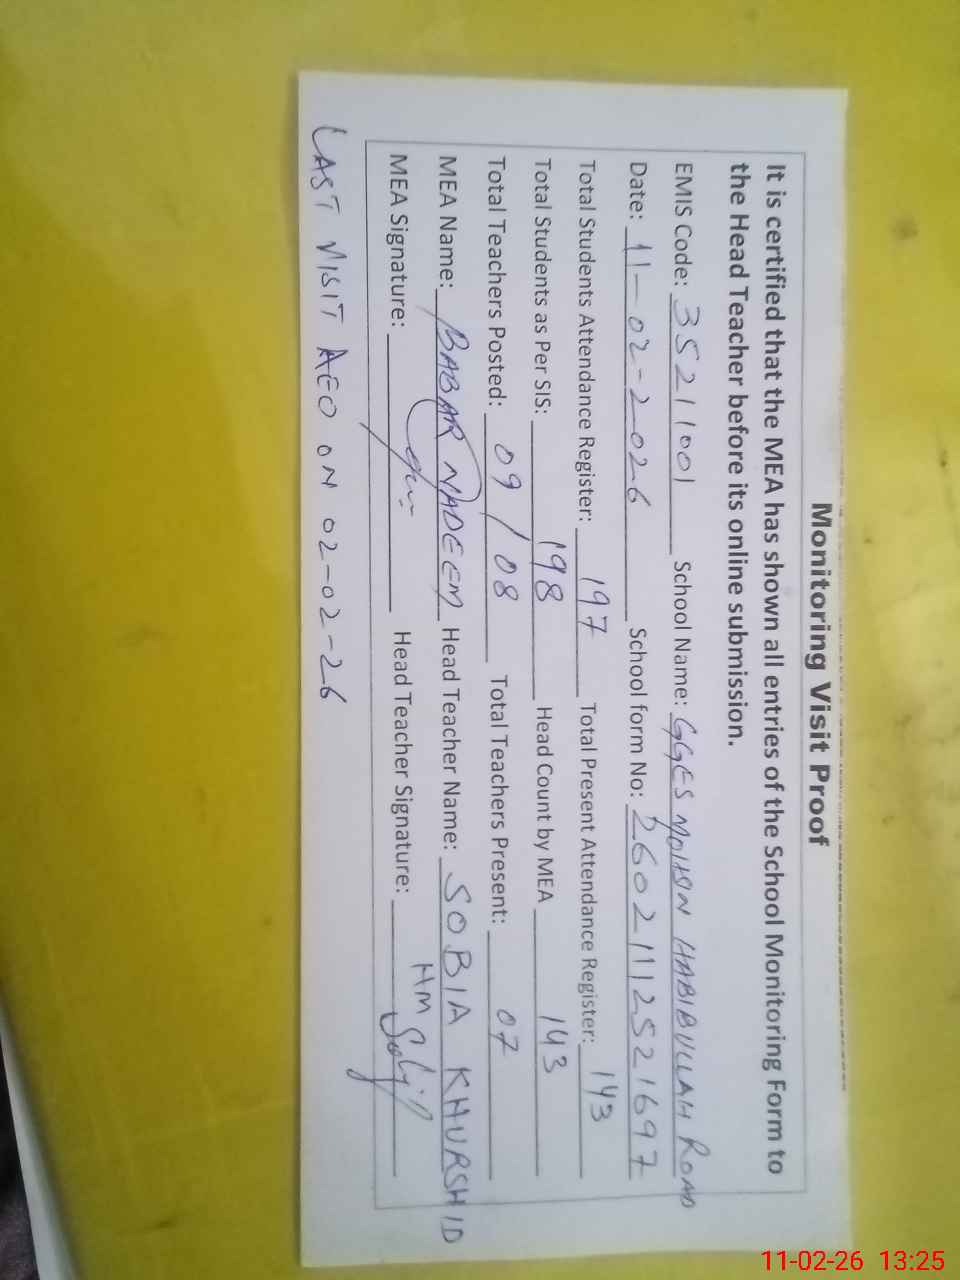 Monitoring Visit Proof
It is certified that the MEA has shown all entries of the School Monitoring Form to
the Head Teacher before its online submission.
EMIS Code: 35211001 School Name: GGES MOHSN HABIBULLAH ROAD
Date: 11-02-2026 School form No: 26021112521697
Total Students Attendance Register: 197 Total Present Attendance Register: 143
Total Students as Per SIS: 198 Head Count by MEA 143
Total Teachers Posted: 09/08 Total Teachers Present: 07
MEA Name: BABAR NADEEM Head Teacher Name: SOBIA KHURSHID
MEA Signature: Head Teacher Signature: HM
LAST VISIT AEO ON 02-02-26
11-02-26 13:25